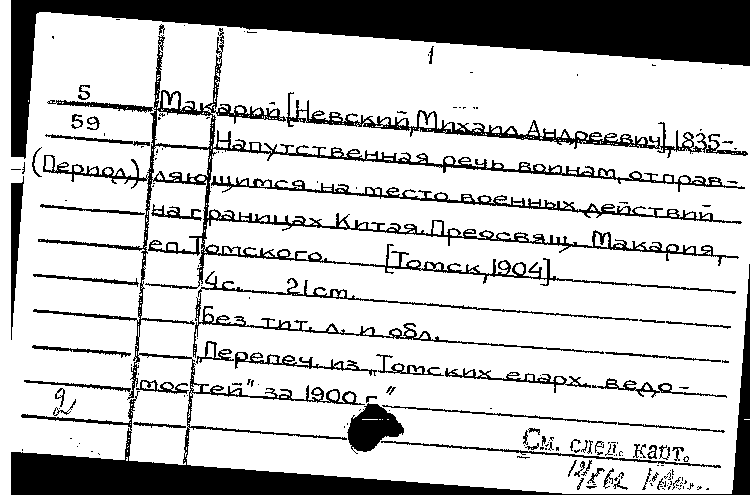 1
5 Макарий [Невский, Михаил Андреевич], 1835-
59 Напутственная речь воинам, отправ-
(Период) ляющимся на место военных действий
на границах Китая. Преосвящ. Макария,
еп. Томского. [Томск, 1904].
4 с. 21 см.
Без тит. л. и обл.
Перепеч. из „Томских епарх. ведо-
мостей" за 1900 г."
2
См. след. карт.